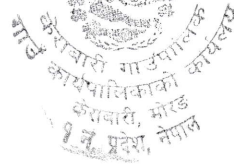 केरावारी गाउँपालिका
कार्यपालिकाको कार्यालय
केरावारी, मोरङ
१ नं. प्रदेश, नेपाल